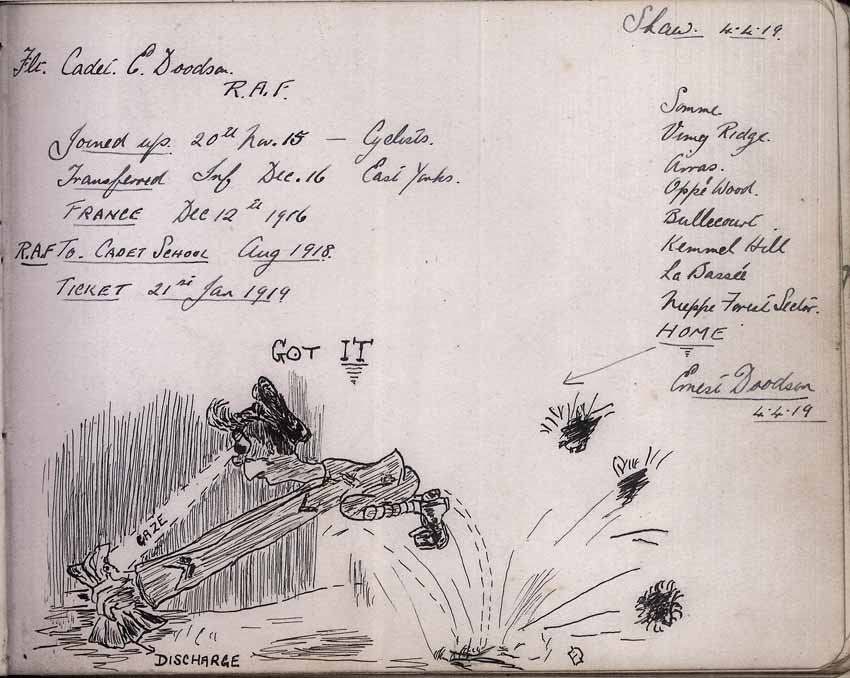 Shaw. 4.4.19.
Flt. Cadet. E. Doodson.
R.A.F.
Joined up. 20th Nov. 15 — Cyclists.
Transferred Inf Dec. 16 East Yorks.
FRANCE Dec 12th 1916
R.A.F To. CADET SCHOOL Aug 1918.
TICKET 21st Jan 1919
Somme
Vimy Ridge.
Arras.
Oppé Wood.
Bullecourt
Kemmel Hill
La Bassée
Nieppe Forest Sector.
HOME
Ernest Doodson
4.4.19
GOT IT
GAZE
DISCHARGE